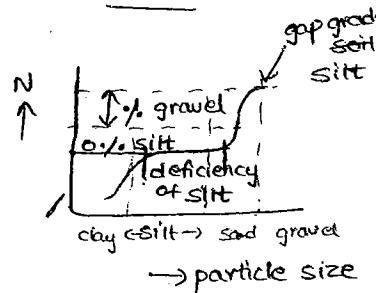 gap grad
soil
silt
N
% gravel
0% silt
deficiency
of silt
clay ←silt→ sand gravel
→ particle size